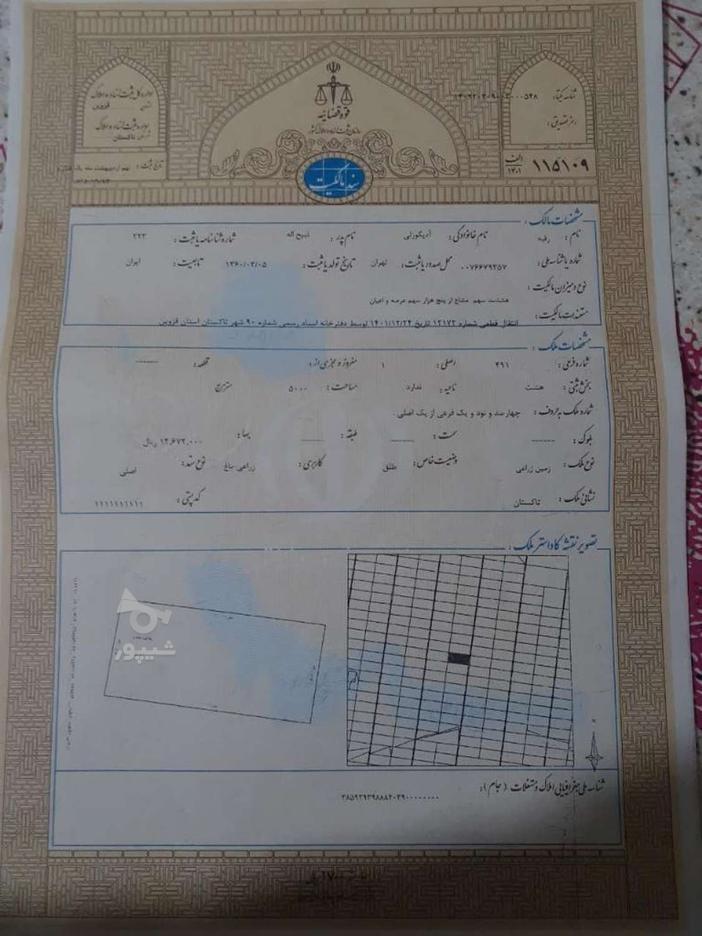 قوه قضائیه
سازمان ثبت اسناد و املاک کشور
اداره کل ثبت اسناد و املاک
استان قزوین
تاکستان
شناسه یکتا:
رمز تصدیق:
سند مالکیت
الف
۱۴۰۱
۱۱۵۱۰۹
تاریخ ثبت:
مشخصات مالک:
نام: رقیه نام خانوادگی: نام پدر: ذبیح اله شماره شناسنامه یا ثبت: ۲۲۳
شماره یا شناسه ملی: ۰۰۷۶۶۷۹۳۵۷ محل صدور یا ثبت: تهران تاریخ تولد یا ثبت: ۱۳۶۰/۰۳/۰۵ تابعیت: ایران
نوع و میزان مالکیت: هشتاد سهم مشاع از پنج هزار سهم عرصه و اعیان
مستندات مالکیت: انتقال قطعی شماره ۱۲۱۷۲ تاریخ ۱۴۰۱/۱۲/۲۴ توسط دفترخانه اسناد رسمی شماره ۹۰ شهر تاکستان استان قزوین
مشخصات ملک:
شماره فرعی: ۴۹۱ اصلی: ۱ مفروز و مجزی از: قطعه: --------
بخش ثبتی: هشت ناحیه: ندارد مساحت: ۵۰۰۰ مترمربع
شماره ملک به حروف: چهارصد و نود و یک فرعی از یک اصلی
بلوک: -------- سمت: -------- طبقه: -------- بها: ۱۲,۶۷۲,۰۰۰ ریال
نوع ملک: زمین زراعی وضعیت خاص: طلق کاربری: زراعی-باغ نوع سند: اصلی
نشانی ملک: تاکستان کد پستی: ۱۱۱۱۱۱۱۱۱۱
تصویر نقشه کاداستر ملک:
شیپور
شناسه ملی جغرافیایی املاک و مستغلات (جام):